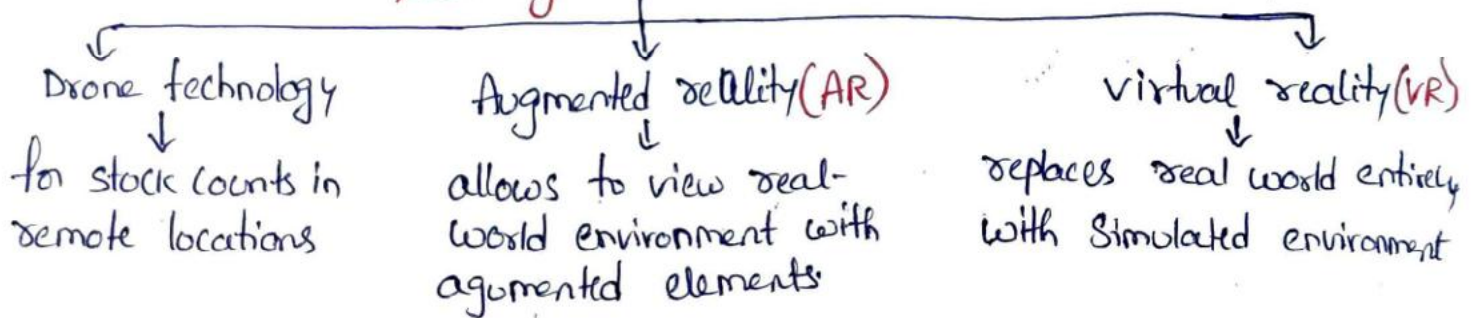 Drone technology
for stock counts in
remote locations
Augmented reality (AR)
allows to view real-
world environment with
agumented elements.
virtual reality (VR)
replaces real world entirely
with Simulated environment